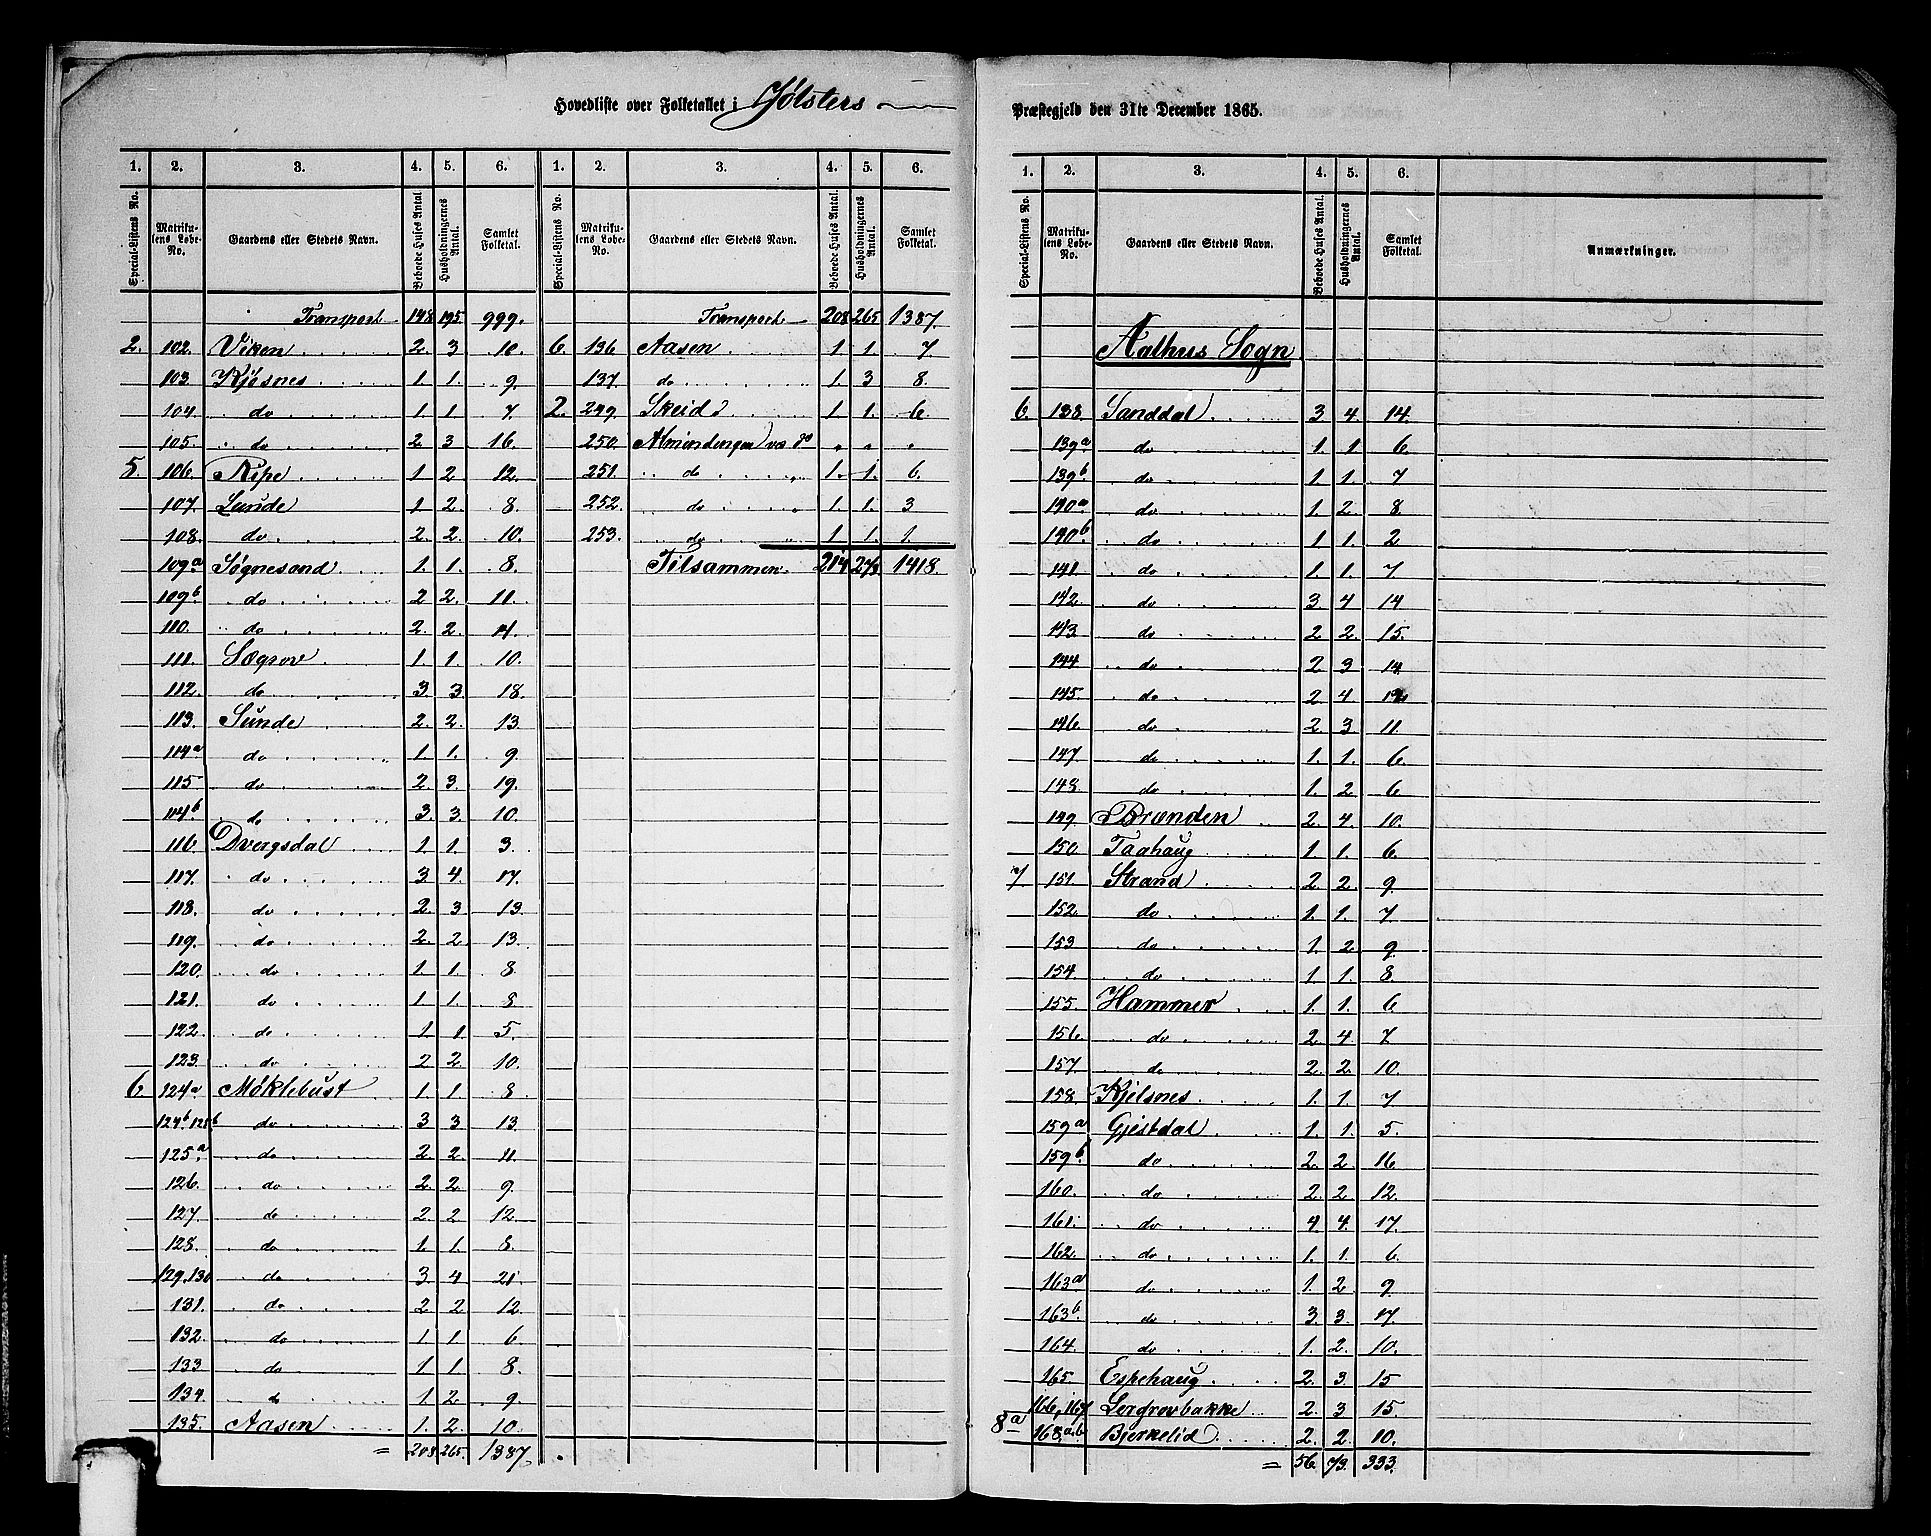 Hovedliste over Folketallet i Jølsters
1. 2. 3. 4. 5. 6. 1. 2. 3. 4. 5. 6.
Special-Listens No. Matrikulens Løbe-No. Gaardens eller Stedets Navn. Beboede Huses Antal. Husholdningernes Antal. Samlet Folketal. Special-Listens No. Matrikulens Løbe-No. Gaardens eller Stedets Navn. Beboede Huses Antal. Husholdningernes Antal. Samlet Folketal.
Transport 148 195 999.
2. 102. Viken 2. 3 10
103. Kjøsnes 1. 1. 9.
104. do 1. 1 7
105. do 2 3 16.
5. 106. Ripe 1 2 12.
107. Lunde 1 2. 8.
108. do 2. 2. 10.
109a Søgnesand 1. 1. 8.
109b do 2 2. 11.
110. do 2. 2. 14.
111. Sægrov 1. 1. 10.
112. do 3. 3. 18.
113. Sunde 2. 2. 13
114a do 1. 1. 9
115 do 2. 3. 19.
114b do 3. 3 10.
116 Dvergsdal 1 1 3.
117. do 3. 4. 17.
118. do 2. 3 13.
119. do 2. 2. 13.
120. do 1. 1. 8.
121. do 1 1. 8
122. do 1 1 5.
123. do 2 2 10.
6. 124a Møklebust 1 1 8
124b 125b do 3 3 13.
125a do 2 2. 11.
126. do 2. 2 9.
127. do 2. 2 12.
128. do 1. 1. 8.
129. 130 do 3. 4 21.
131. do 2 2 12.
132. do 1 1 6
133 do 1 1 8.
134. do 1 2. 9.
135. Aasen 1. 2. 10.
= 208. 265. 1387.
Transport 208 265 1387.
6. 136 Aasen 1 1. 7
137. do 1. 3 8.
2. 249. Skeid 1 1. 6
250. Almendingen ved do " " "
251. do 1. 1. 6.
252. do 1. 1. 3
253. do 1 1. 1.
Tilsammen 214 274 1418.
Præstegjeld den 31te December 1865.
1. 2. 3. 4. 5. 6.
Special-Listens No. Matrikulens Løbe-No. Gaardens eller Stedets Navn. Beboede Huses Antal. Husholdningernes Antal. Samlet Folketal. Anmærkninger.
Aalhus Sogn
6. 138 Sanddal 3 4 14.
139a do 1 1 6
139b do 1 1. 7
140a do 1. 2 8
140b do 1 1. 2
141. do 1. 1. 7
142. do 3 4 14
143 do 2 2. 15.
144 do 2 3 14
145. do 2 4
146. do 2 3 11.
147 do 1. 1. 6
148. do 1. 2 6
149. Brænden 2 4. 10.
150 Taahaug 1 1. 6.
7 151. Strand 2 2. 9
152 do 1. 1. 7
153 do 1. 2 9
154. do 1 1 8.
155. Hammer 1. 1. 6
156. do 2 4 7
157 do 2 2. 10
158. Kjelsnes 1. 1. 7
159a Gjestdal 1. 1. 5.
159b do 2. 2. 16
160. do 2 2 12.
161. do 4 4. 17.
162. do 1. 1. 6
163a do 1. 2 9
163b do 3. 3. 17.
164. do 1. 2. 10.
165. Espehaug 2. 3. 15
166, 167 Lergrovbakke 2. 3 15.
8a 168a,b Bjerkelid 2. 2. 10.
= 56. 73. 333.